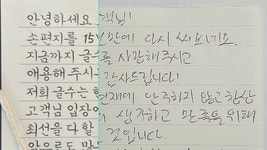 안녕하세요 고객님!
손편지를 15년 만에 다시 써보네요.
지금까지 글수 를 사랑해주시고
애용해 주시 감사드립니다!
저희 글수는 현재에 안주하지 않고 항상
고객님 입장에 생각하고 만족을 위해
최선을 다할 것입니다
앞으로도